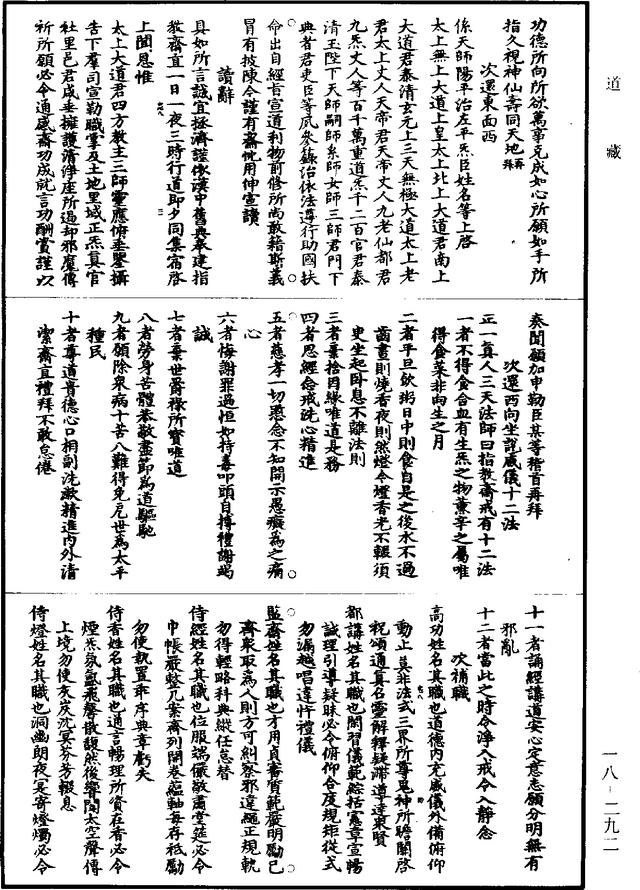 道藏
功德所向所欲萬事克成如心所願如手所
指久視神仙壽同天地再拜
次還東面西
係天師陽平治左平炁臣姓名等上啓
太上無上大道上皇太上北上大道君南上
大道君泰清玄元上三天無極大道太上老
君太上丈人天帝君天帝丈人九老仙都君
九炁丈人等百千萬重道炁千二百官君泰
清玉陛下天師嗣師系師女師三師君門下
典者君吏臣等夙參籙治依法遵行助國扶
命出自經旨宣道利物前修所尚敢藉斯義
冒有披陳今謹有齋悃用伸宣讀
讀辭
具如所言誠宜拯濟謹依漢中舊典奉建指
教齋直一日一夜三時行道即夕同集宿啓
上聞恩惟
太上大道君四方教主三師靈應俯垂鑒攝
告下羣司宣勒職掌及土地里域正炁真官
社里邑君咸垂擁護清淨座所遏却邪魔傳
祈所願必令通感齋功成就言功酬賞謹以
奏聞願加申勒臣某等稽首再拜
次還西向坐說威儀十二法
正一真人三天法師曰指教齋戒有十二法
一者不得食含血有生炁之物薰辛之屬唯
得食菜非向生之月
二者平旦飲粥日中則食自是之後水不過
齒晝則燒香夜則然燈令燈香光不輟須
史坐起卧息不離法則
三者棄捨因緣唯道是務
四者思經念戒洗心精進
五者慈孝一切愍念不知開示愚癡為之痛
心
六者悔謝罪過恒如持毒叩頭自搏禮謝竭
誠
七者棄世爵祿所寶唯道
八者勞身苦體恭敬盡節為道驅馳
九者願除衆病十苦八難得免厄世為太平
種民
十者尊道貴德心口相副洗漱精進內外清
潔齋直禮拜不敢怠倦
十一者誦經講道安心定意志願分明無有
邪亂
十二者當此之時令淨入戒令入靜念
次補職
高功姓名其職也道德內充威儀外備俯仰
動止莫非法式三界所尊鬼神所瞻關啓
祝頌通真召靈解釋疑滯道達衆賢
都講姓名其職也閑習儀範綜括憲章宣暢
誠理引導疑昧必令俯仰合度規矩從式
勿漏越唱違忤禮儀
監齋姓名其職也才用貞審質範嚴明勵己
齊衆取為人則方可糾察邪違繩正規軌
勿得輕略科典縱任怠替
侍經姓名其職也位服端儼敬肅堂筵必令
巾帳嚴整几案齊列開卷蘊軸每存祗勵
勿使執置乖序典章虧失
侍香姓名其職也通言暢理所資在香必令
煙炁氛氳飛馨散馥然後響聞太空聲傳
上境勿使灰炭沈冥芬芳輟息
侍燈姓名其職也洞幽朗夜寔寄燈燭必令
一八－二九二